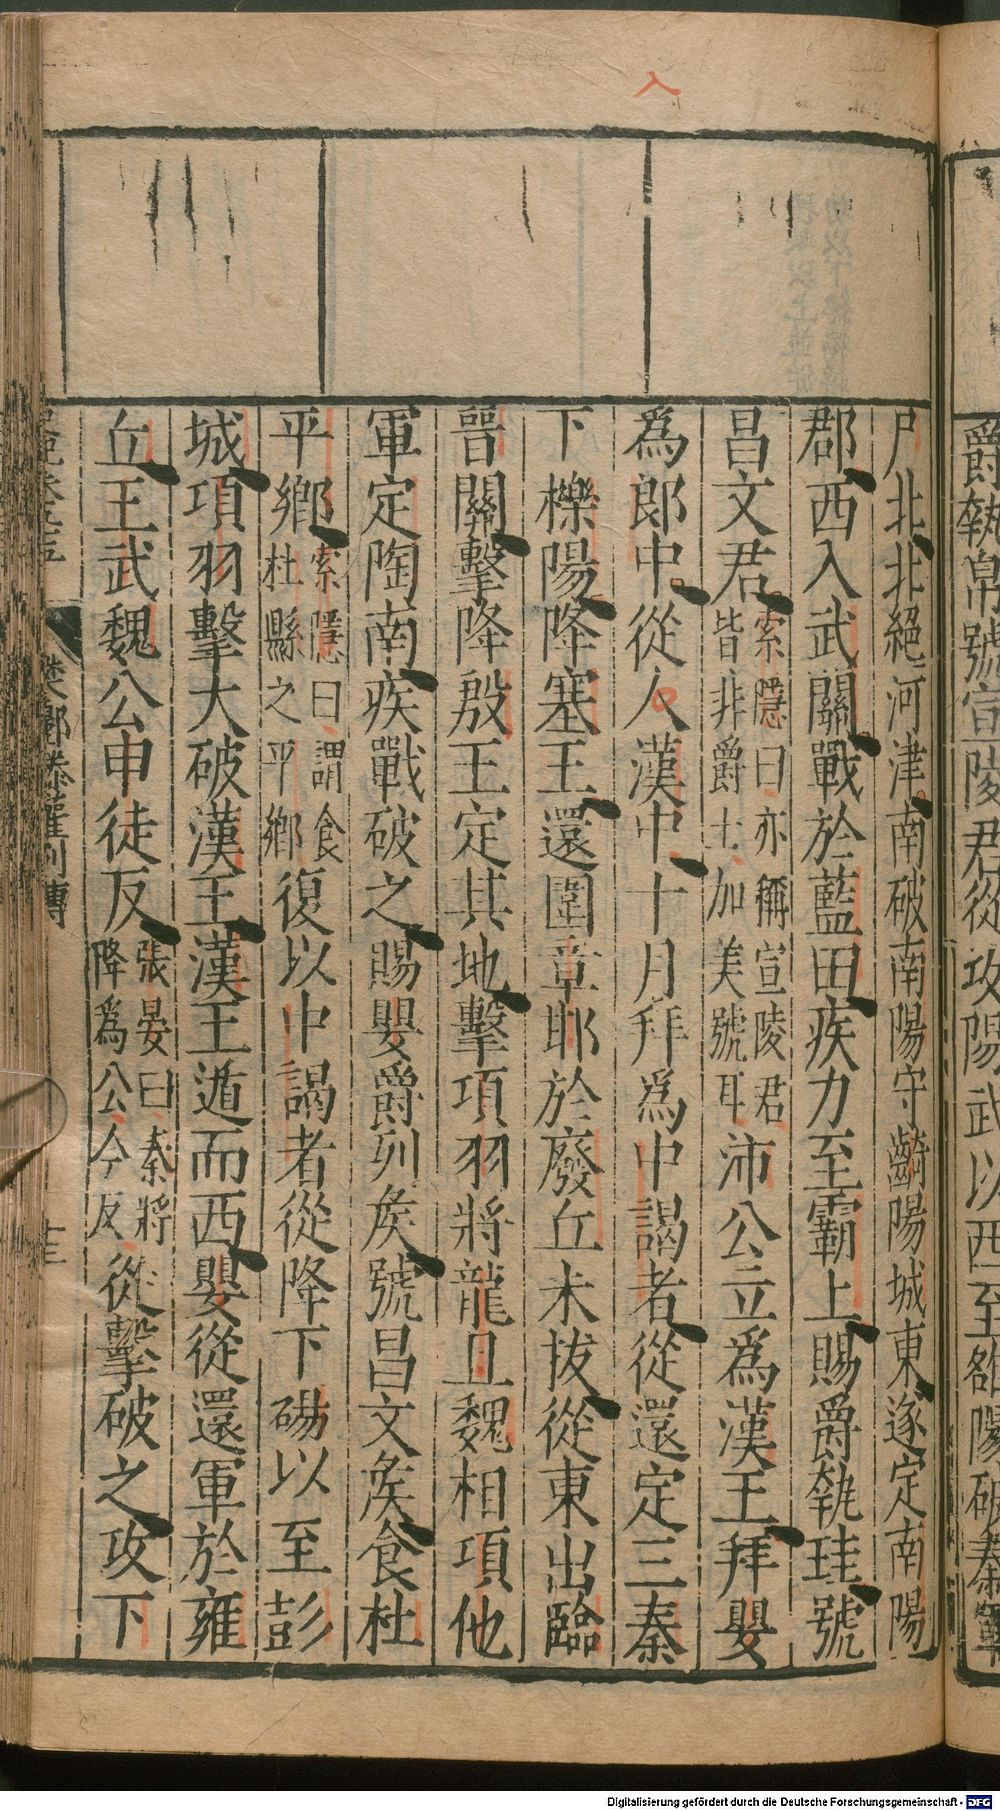 爵執帛號宣陵君從攻陽武以西至雒陽破秦軍
尸北北絕河津南破南陽守齮陽城東遂定南陽
郡西入武關戰於藍田疾力至霸上賜爵執珪號
昌文君索隱曰亦稱宣陵君皆非爵土加美號耳沛公立爲漢王拜嬰
爲郎中從入漢中十月拜爲中謁者從還定三秦
下櫟陽降塞王還圍章邯於廢丘未拔從東出臨
晉關擊降殷王定其地擊項羽將龍且魏相項他
軍定陶南疾戰破之賜嬰爵列矦號昌文矦食杜
平鄉索隱曰謂食杜縣之平鄉復以中謁者從降下碭以至彭
城項羽擊大破漢王漢王遁而西嬰從還軍於雍
丘王武魏公申徒反張晏曰秦將降爲公今反從擊破之攻下
樊酈滕灌列傳
十三
Digitalisierung gefördert durch die Deutsche Forschungsgemeinschaft - DFG